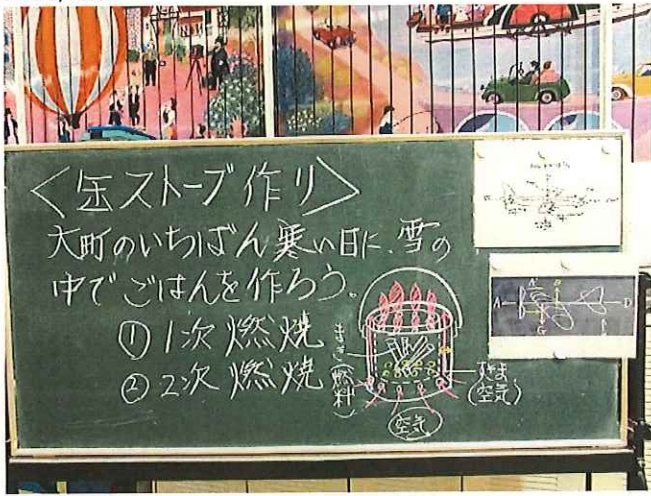 <缶ストーブ作り>
大町のいちばん寒い日に、雪の
中でごはんを作ろう。
① 1次燃焼
② 2次燃焼
まき
(燃料)
すきま
(空気)
空気
A
A'
B
D
G